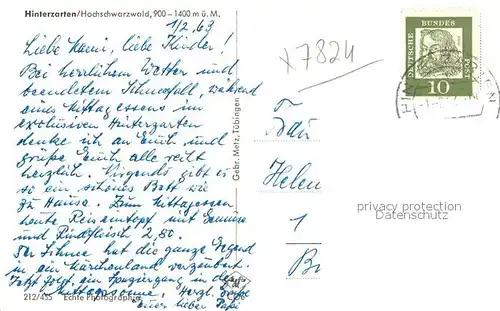 Hinterzarten/Hochschwarzwald, 900 – 1400 m ü. M.
1/2.63
Liebe Kami, liebe Kinder!
Bei herrlichem Wetter und
beendetem Schneefall, während
eines Mittagessens im
exclusiven Hinterzarten
denke ich an Euch und
grüße Euch alle recht
herzlich. Nirgends gibt es
so ein schönes Bett wie
zu Hause. Zum Mittagessen
heute Reiseintopf mit Gemüse
und Rindfleisch 2,80.
Der Schnee hat die ganze Gegend
in ein Märchenland verzaubert.
Jetzt folgt ein Spaziergang in der
Mittagssonne. Herzl. Grüße
Euer lieber Papi
212/455 Echte Photographie
Gebr. Metz, Tübingen
X7824
DEUTSCHE
BUNDES
POST
10
Helen
1
privacy protection
Datenschutz